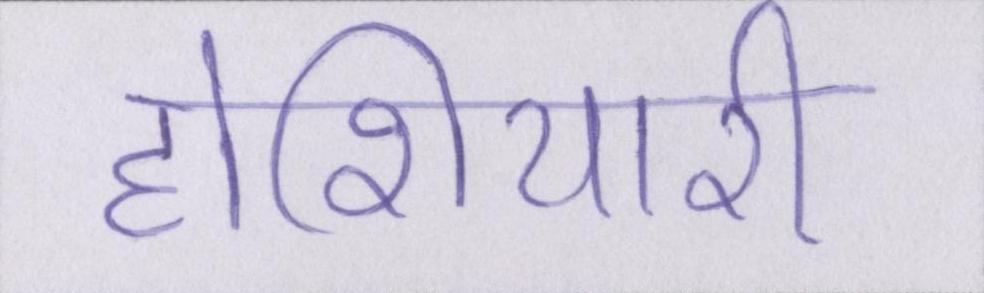 होशियारी